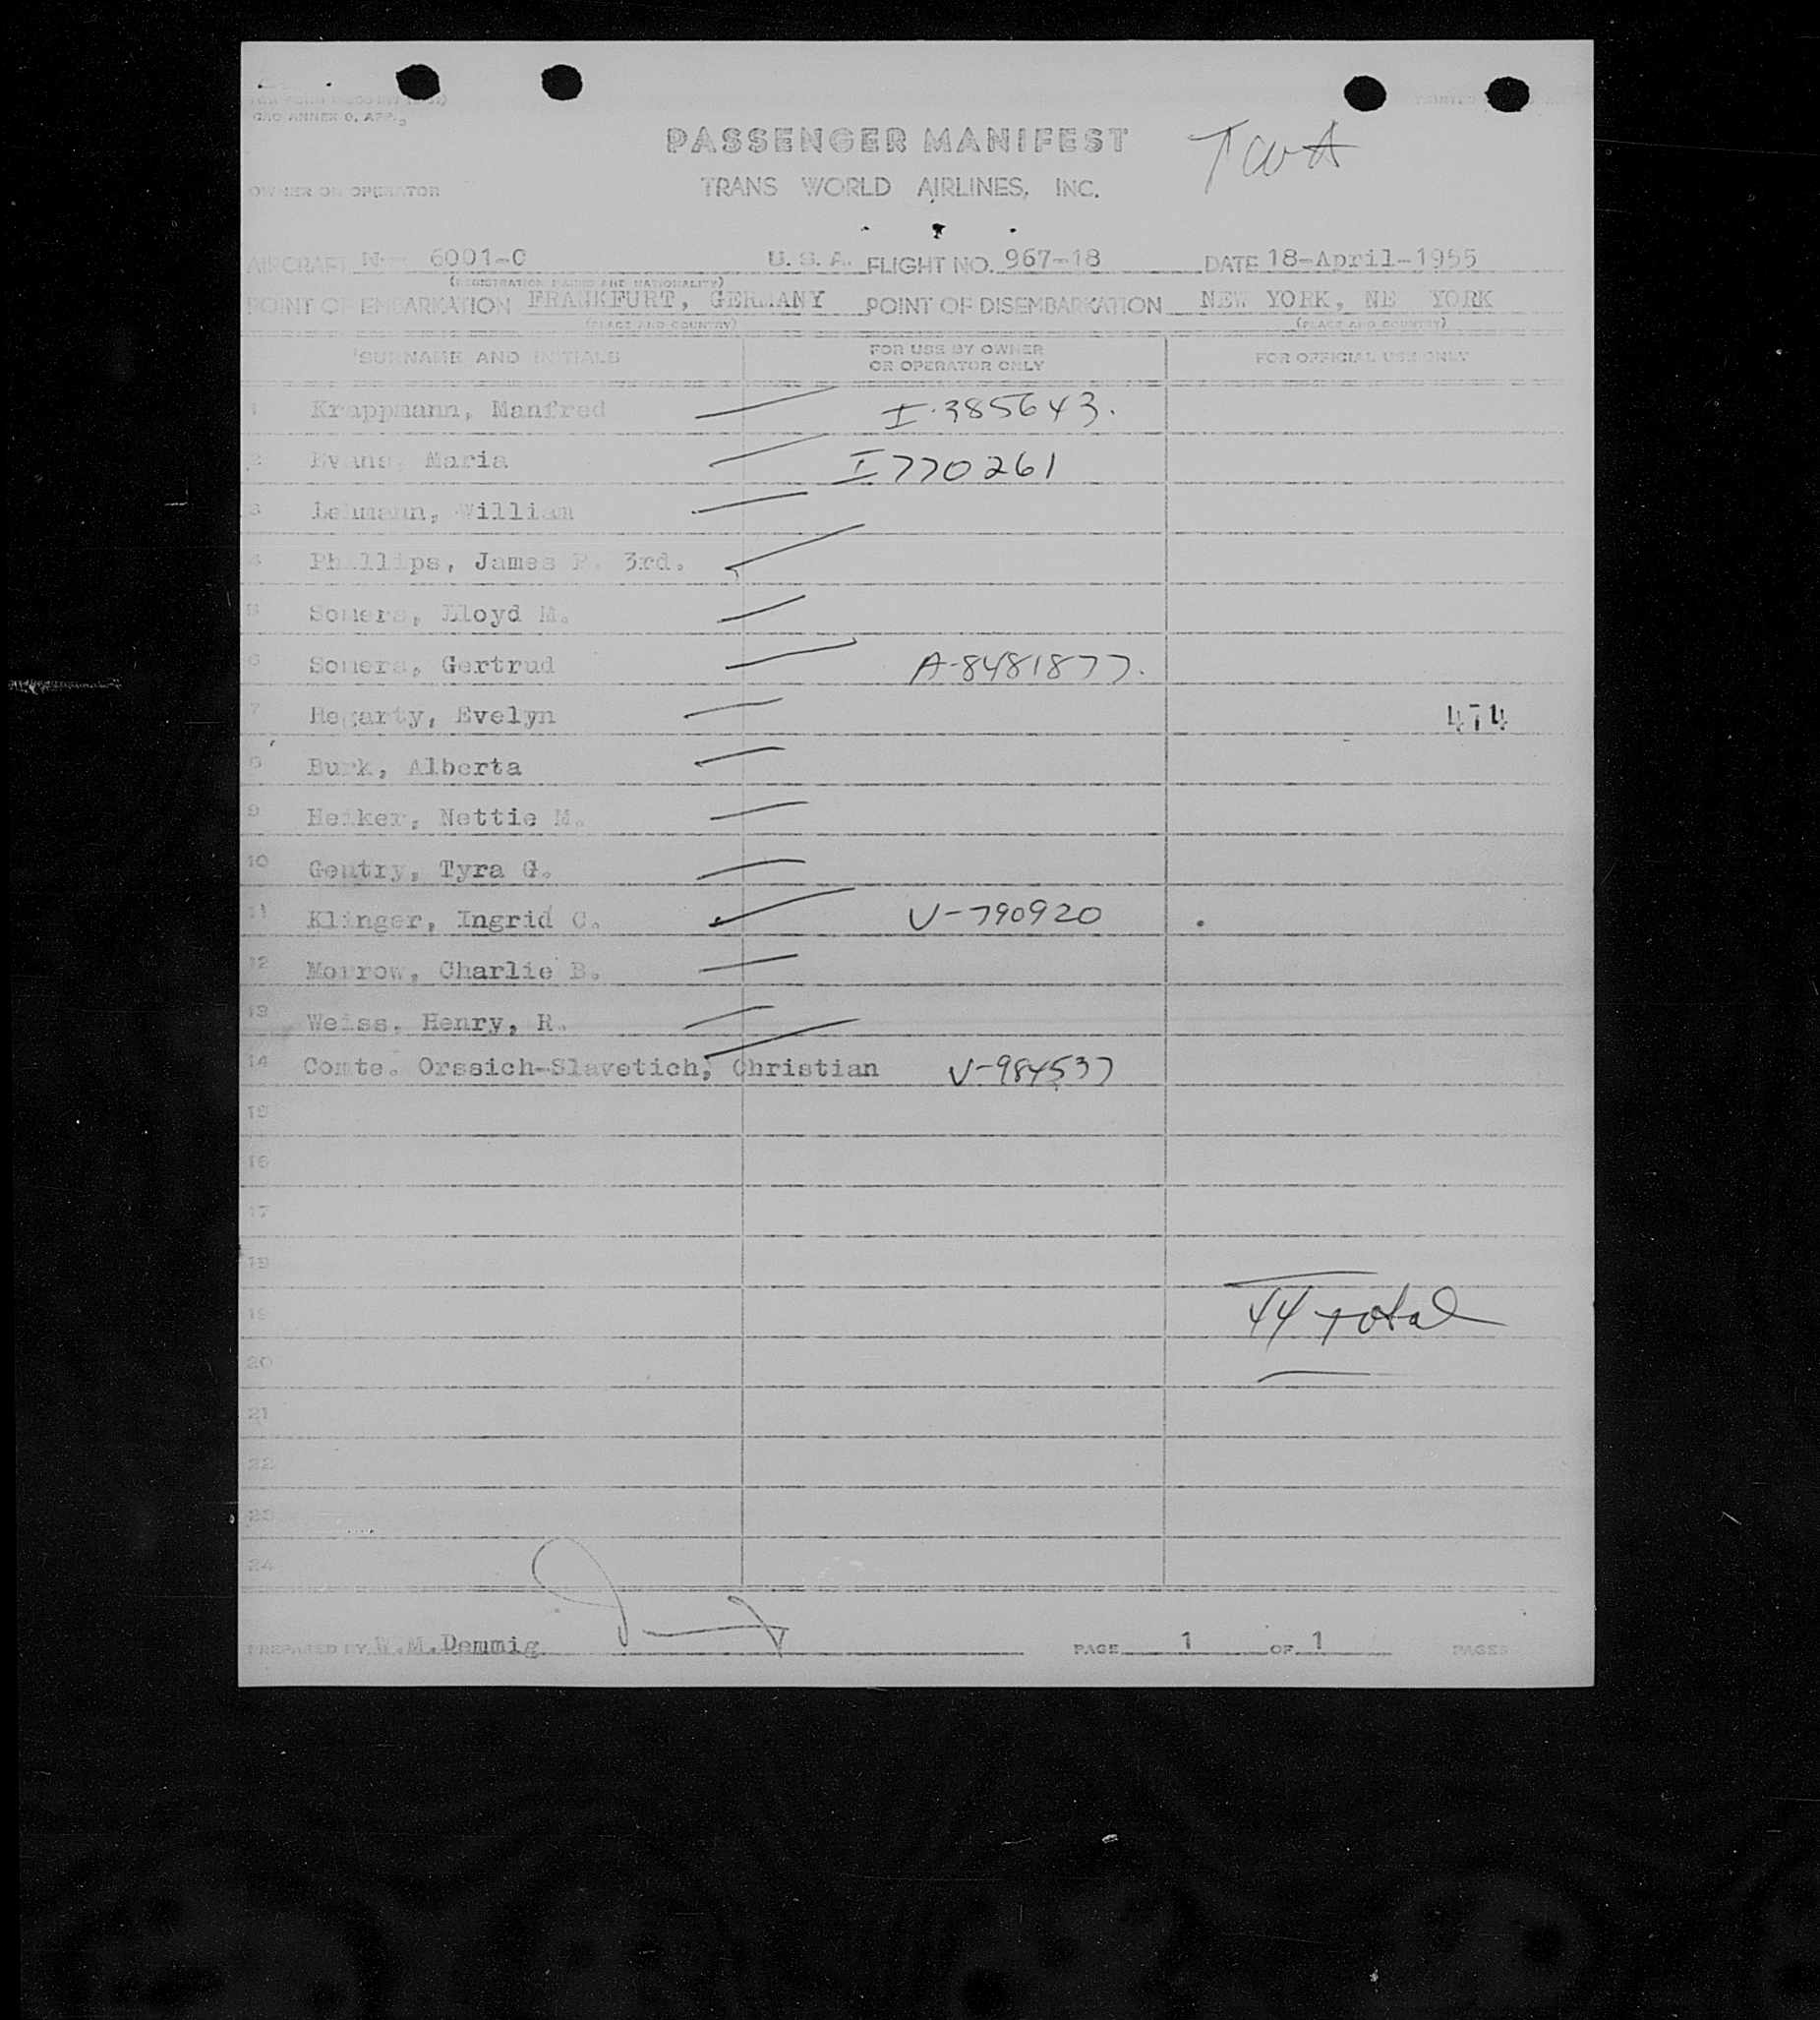 CAO ANNEX 9, APP.
PASSENGER MANIFEST TWA
OWNER OR OPERATOR TRANS WORLD AIRLINES, INC.
AIRCRAFT N 6001-C U. S. A. FLIGHT NO. 967-18 DATE 18-April-1955
(REGISTRATION MARKS AND NATIONALITY)
POINT OF EMBARKATION FRANKFURT, GERMANY POINT OF DISEMBARKATION NEW YORK, NE YORK
(PLACE AND COUNTRY) (PLACE AND COUNTRY)
SURNAME AND INITIALS FOR USE BY OWNER OR OPERATOR ONLY FOR OFFICIAL USE ONLY
1 Krappmann, Manfred I-385643.
2 Evans, Maria I770261
3 Lehmann, William
4 Phillips, James P. 3rd.
5 Somers, Lloyd M.
6 Somers, Gertrud A-8481877.
7 Hegarty, Evelyn 474
8 Burk, Alberta
9 Heiker, Nettie M.
10 Gentry, Tyra G.
11 Klinger, Ingrid C. V-790920
12 Morrow, Charlie B.
13 Weiss, Henry, R.
14 Comte. Orssich-Slavetich, Christian V-984537
15
16
17
18
19 44 total
20
21
22
23
24
PREPARED BY W.M.Demmig PAGE 1 OF 1 PAGES